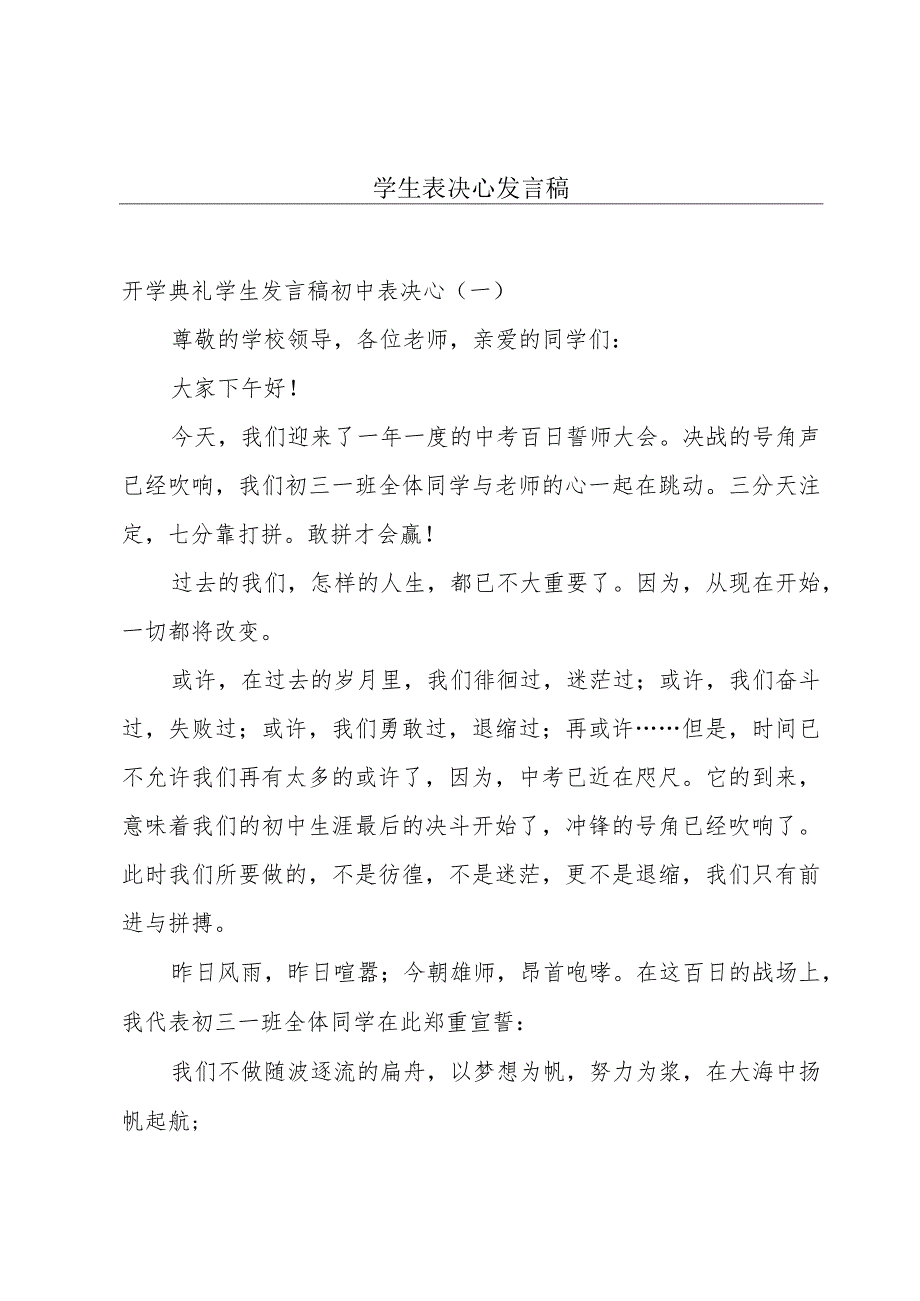 学生表决心发言稿
开学典礼学生发言稿初中表决心（一）
尊敬的学校领导，各位老师，亲爱的同学们：
大家下午好！
今天，我们迎来了一年一度的中考百日誓师大会。决战的号角声
已经吹响，我们初三一班全体同学与老师的心一起在跳动。三分天注
定，七分靠打拼。敢拼才会赢！
过去的我们，怎样的人生，都已不大重要了。因为，从现在开始，
一切都将改变。
或许，在过去的岁月里，我们徘徊过，迷茫过；或许，我们奋斗
过，失败过；或许，我们勇敢过，退缩过；再或许……但是，时间已
不允许我们再有太多的或许了，因为，中考已近在咫尺。它的到来，
意味着我们的初中生涯最后的决斗开始了，冲锋的号角已经吹响了。
此时我们所要做的，不是彷徨，不是迷茫，更不是退缩，我们只有前
进与拼搏。
昨日风雨，昨日喧嚣；今朝雄师，昂首咆哮。在这百日的战场上，
我代表初三一班全体同学在此郑重宣誓：
我们不做随波逐流的扁舟，以梦想为帆，努力为浆，在大海中扬
帆起航;